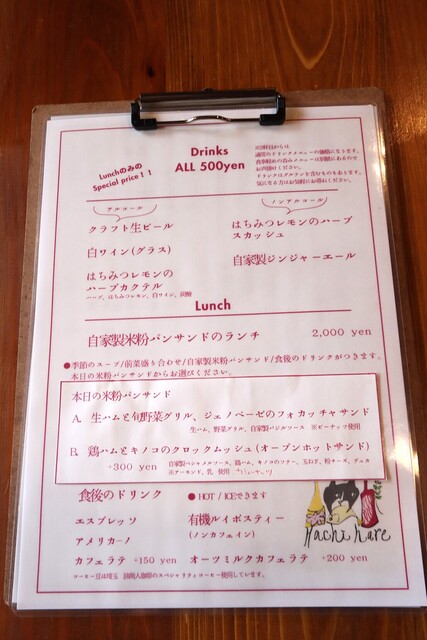 Drinks
ALL 500yen
Lunchのみの
Special price！！
※2杯目からは
通常のドリンクメニューの価格になります。
お声掛けください。
ドリンクはグルテンを含むものもあります。
気になる方はお気軽にお尋ねください。
アルコール
クラフト生ビール
白ワイン(グラス)
はちみつレモンの
ハーブカクテル
ハーブ、はちみつレモン、白ワイン、炭酸
ノンアルコール
はちみつレモンのハーブ
スカッシュ
自家製ジンジャーエール
Lunch
自家製米粉パンサンドのランチ 2,000 yen
●季節のスープ/前菜盛り合わせ/自家製米粉パンサンド/食後のドリンクがつきます。
本日の米粉パンサンドからお選びください。
本日の米粉パンサンド
A. 生ハムと旬野菜グリル、ジェノベーゼのフォカッチャサンド
生ハム、野菜グリル、自家製バジルソース ※ピーナッツ使用
B. 鶏ハムとキノコのクロックムッシュ(オープンホットサンド)
+300 yen 自家製ベシャメルソース、鶏ハム、キノコのソテー、玉ねぎ、粉チーズ、
※アーモンド、乳 使用
食後のドリンク ● HOT / ICEできます
エスプレッソ
アメリカーノ
カフェラテ +150 yen
有機ルイボスティー
(ノンカフェイン)
オーツミルクカフェラテ +200 yen
コーヒー豆は埼玉 珈琲のスペシャリティコーヒー使用しています。
Hachi hare